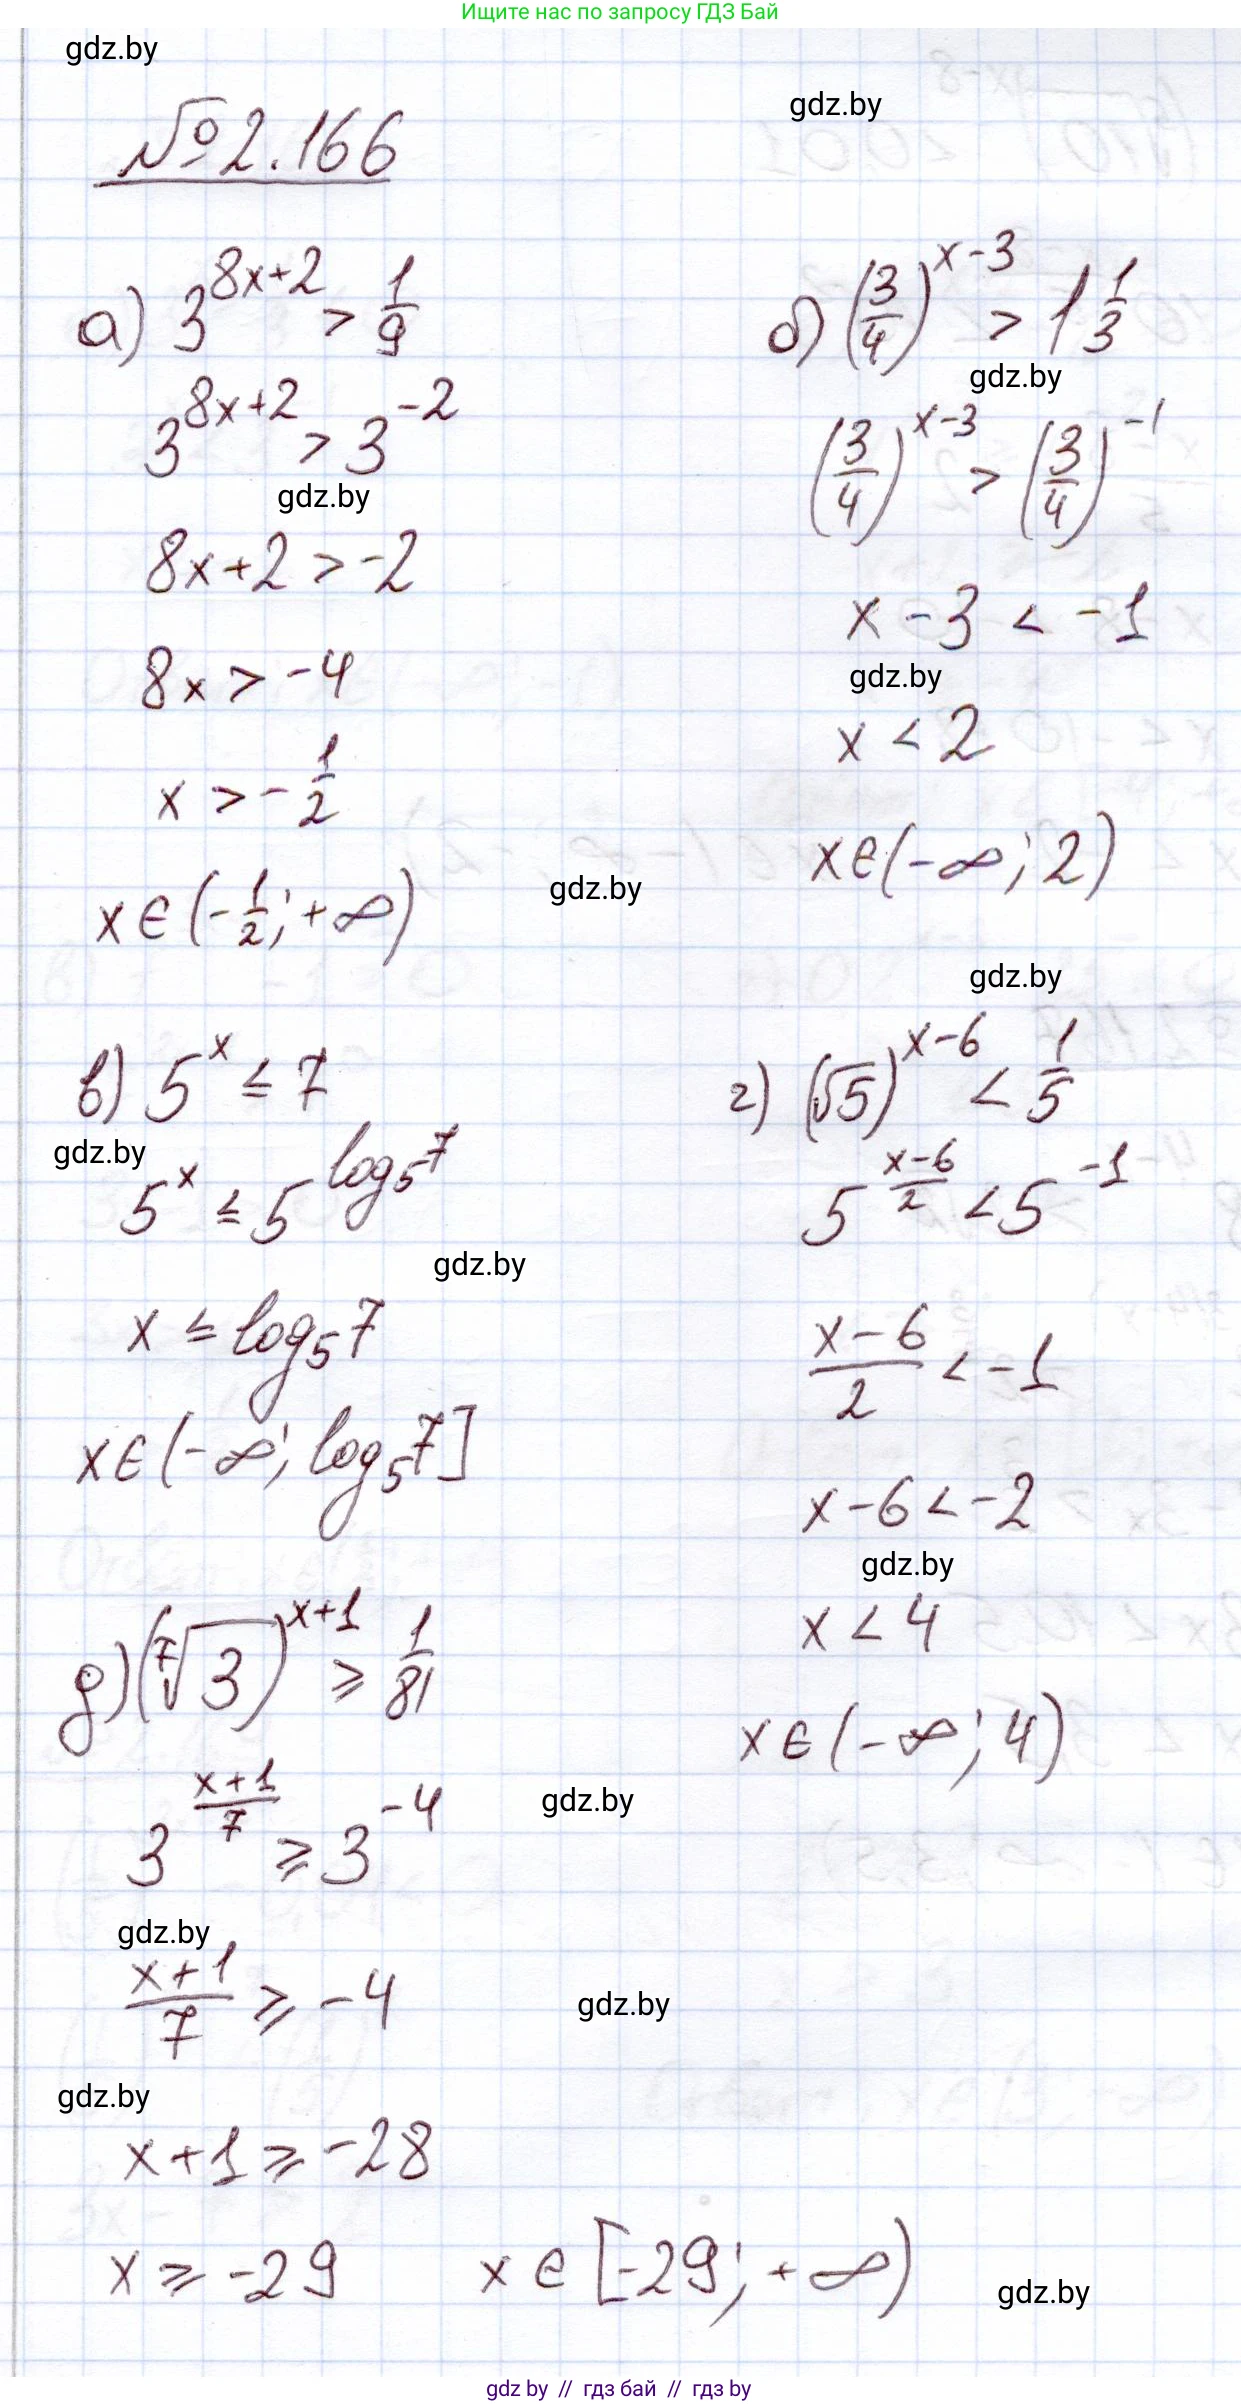 Ищите нас по запросу ГДЗ Бай
gdz.by
gdz.by
№2.166
а) 3^(8x+2) > 1/9
3^(8x+2) > 3^(-2)
gdz.by
8x+2 > -2
8x > -4
x > -1/2
x ∈ (-1/2; +∞)
gdz.by
б) (3/4)^(x-3) > 1 1/3
gdz.by
(3/4)^(x-3) > (3/4)^(-1)
x-3 < -1
gdz.by
x < 2
x ∈ (-∞; 2)
gdz.by
в) 5^x ≤ 7
gdz.by
5^x ≤ 5^(log₅7)
gdz.by
x ≤ log₅7
x ∈ (-∞; log₅7]
г) (√5)^(x-6) < 1/5
5^((x-6)/2) < 5^(-1)
(x-6)/2 < -1
x-6 < -2
gdz.by
x < 4
x ∈ (-∞; 4)
д) (⁷√3)^(x+1) ≥ 1/81
3^((x+1)/7) ≥ 3^(-4)
gdz.by
gdz.by
(x+1)/7 ≥ -4
gdz.by
gdz.by
x+1 ≥ -28
x ≥ -29 x ∈ [-29; +∞)
gdz.by
gdz by // гдз бай // гдз by